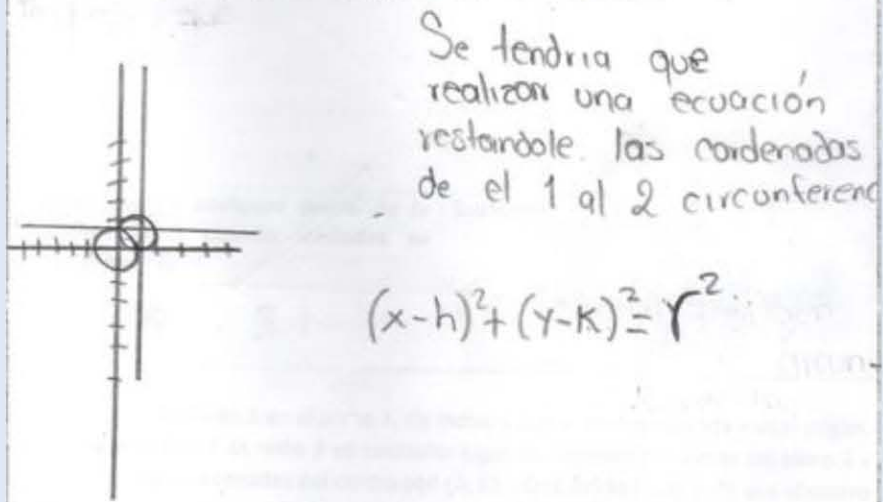 Se tendria que
realizar una ecuación
restandole. las cordenadas
de el 1 al 2 circunferenc
(x-h)²+(y-k)²=r²